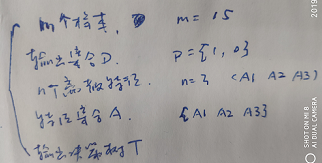 m个样本, m = 15
输出集合D. D = {1, 0}
n个离散特征 n = 3 (A1 A2 A3)
特征集合A. {A1 A2 A3}
输出决策树T
2019
SHOT ON MI 8
AI DUAL CAMERA